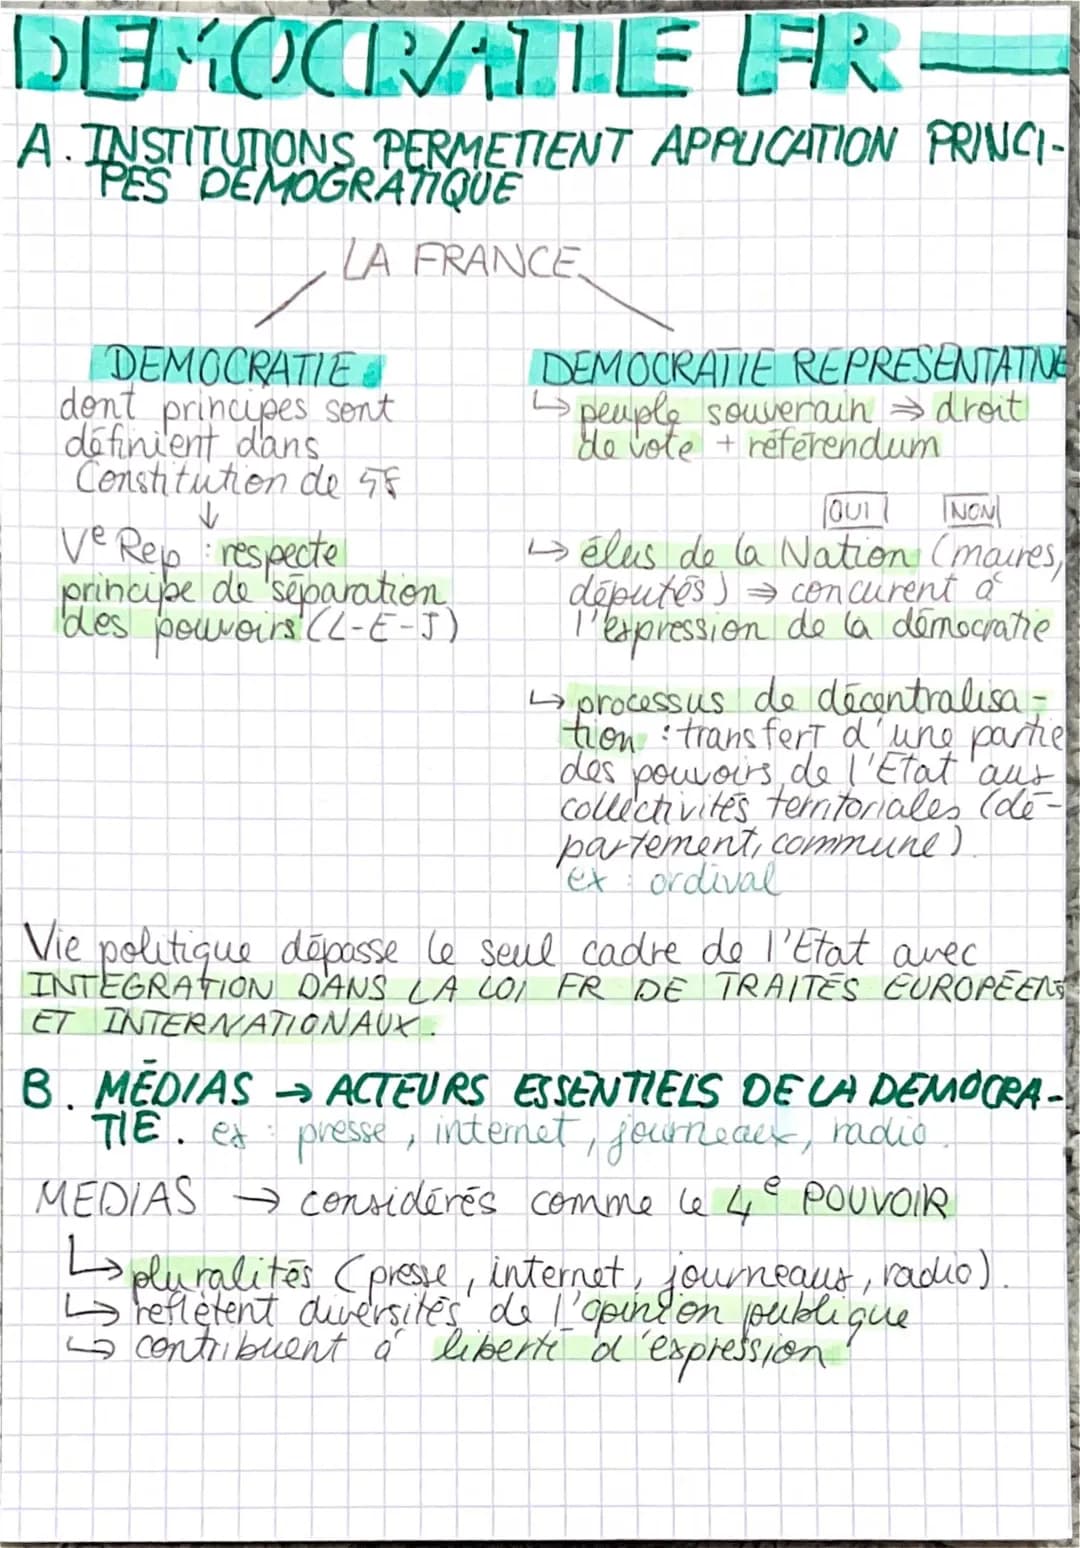 DEMOCRATIE FR
A. INSTITUTIONS PERMETTENT APPLICATION PRINCI-
PES DEMOGRATIQUE
LA FRANCE
DEMOCRATIE
dont principes sont
définient dans
Constitution de 58
↓
Ve Rep : respecte
principe de séparation
des pouvoirs (L-E-J)
DEMOCRATIE REPRESENTATIVE
↳ peuple souverain ⇒ droit
de vote + référendum
OUI NON
↳ élus de la Nation (maires,
députés) ⇒ concurent à
l'expression de la démocratie
↳ processus de décentralisa-
tion : transfert d'une partie
des pouvoirs de l'Etat aux
collectivités territoriales (dé-
partement, commune)
ex : ordival
Vie politique dépasse le seul cadre de l'Etat avec
INTEGRATION DANS LA LOI FR DE TRAITÉS EUROPÉENS
ET INTERNATIONAUX.
B. MÉDIAS → ACTEURS ESSENTIELS DE LA DEMOCRA-
TIE. ex : presse, internet, journeaux, radio.
MEDIAS → considérés comme le 4e POUVOIR
↳ pluralités (presse, internet, journeaux, radio).
↳ reflètent diversités de l'opinion publique
↳ contribuent à liberté d'expression